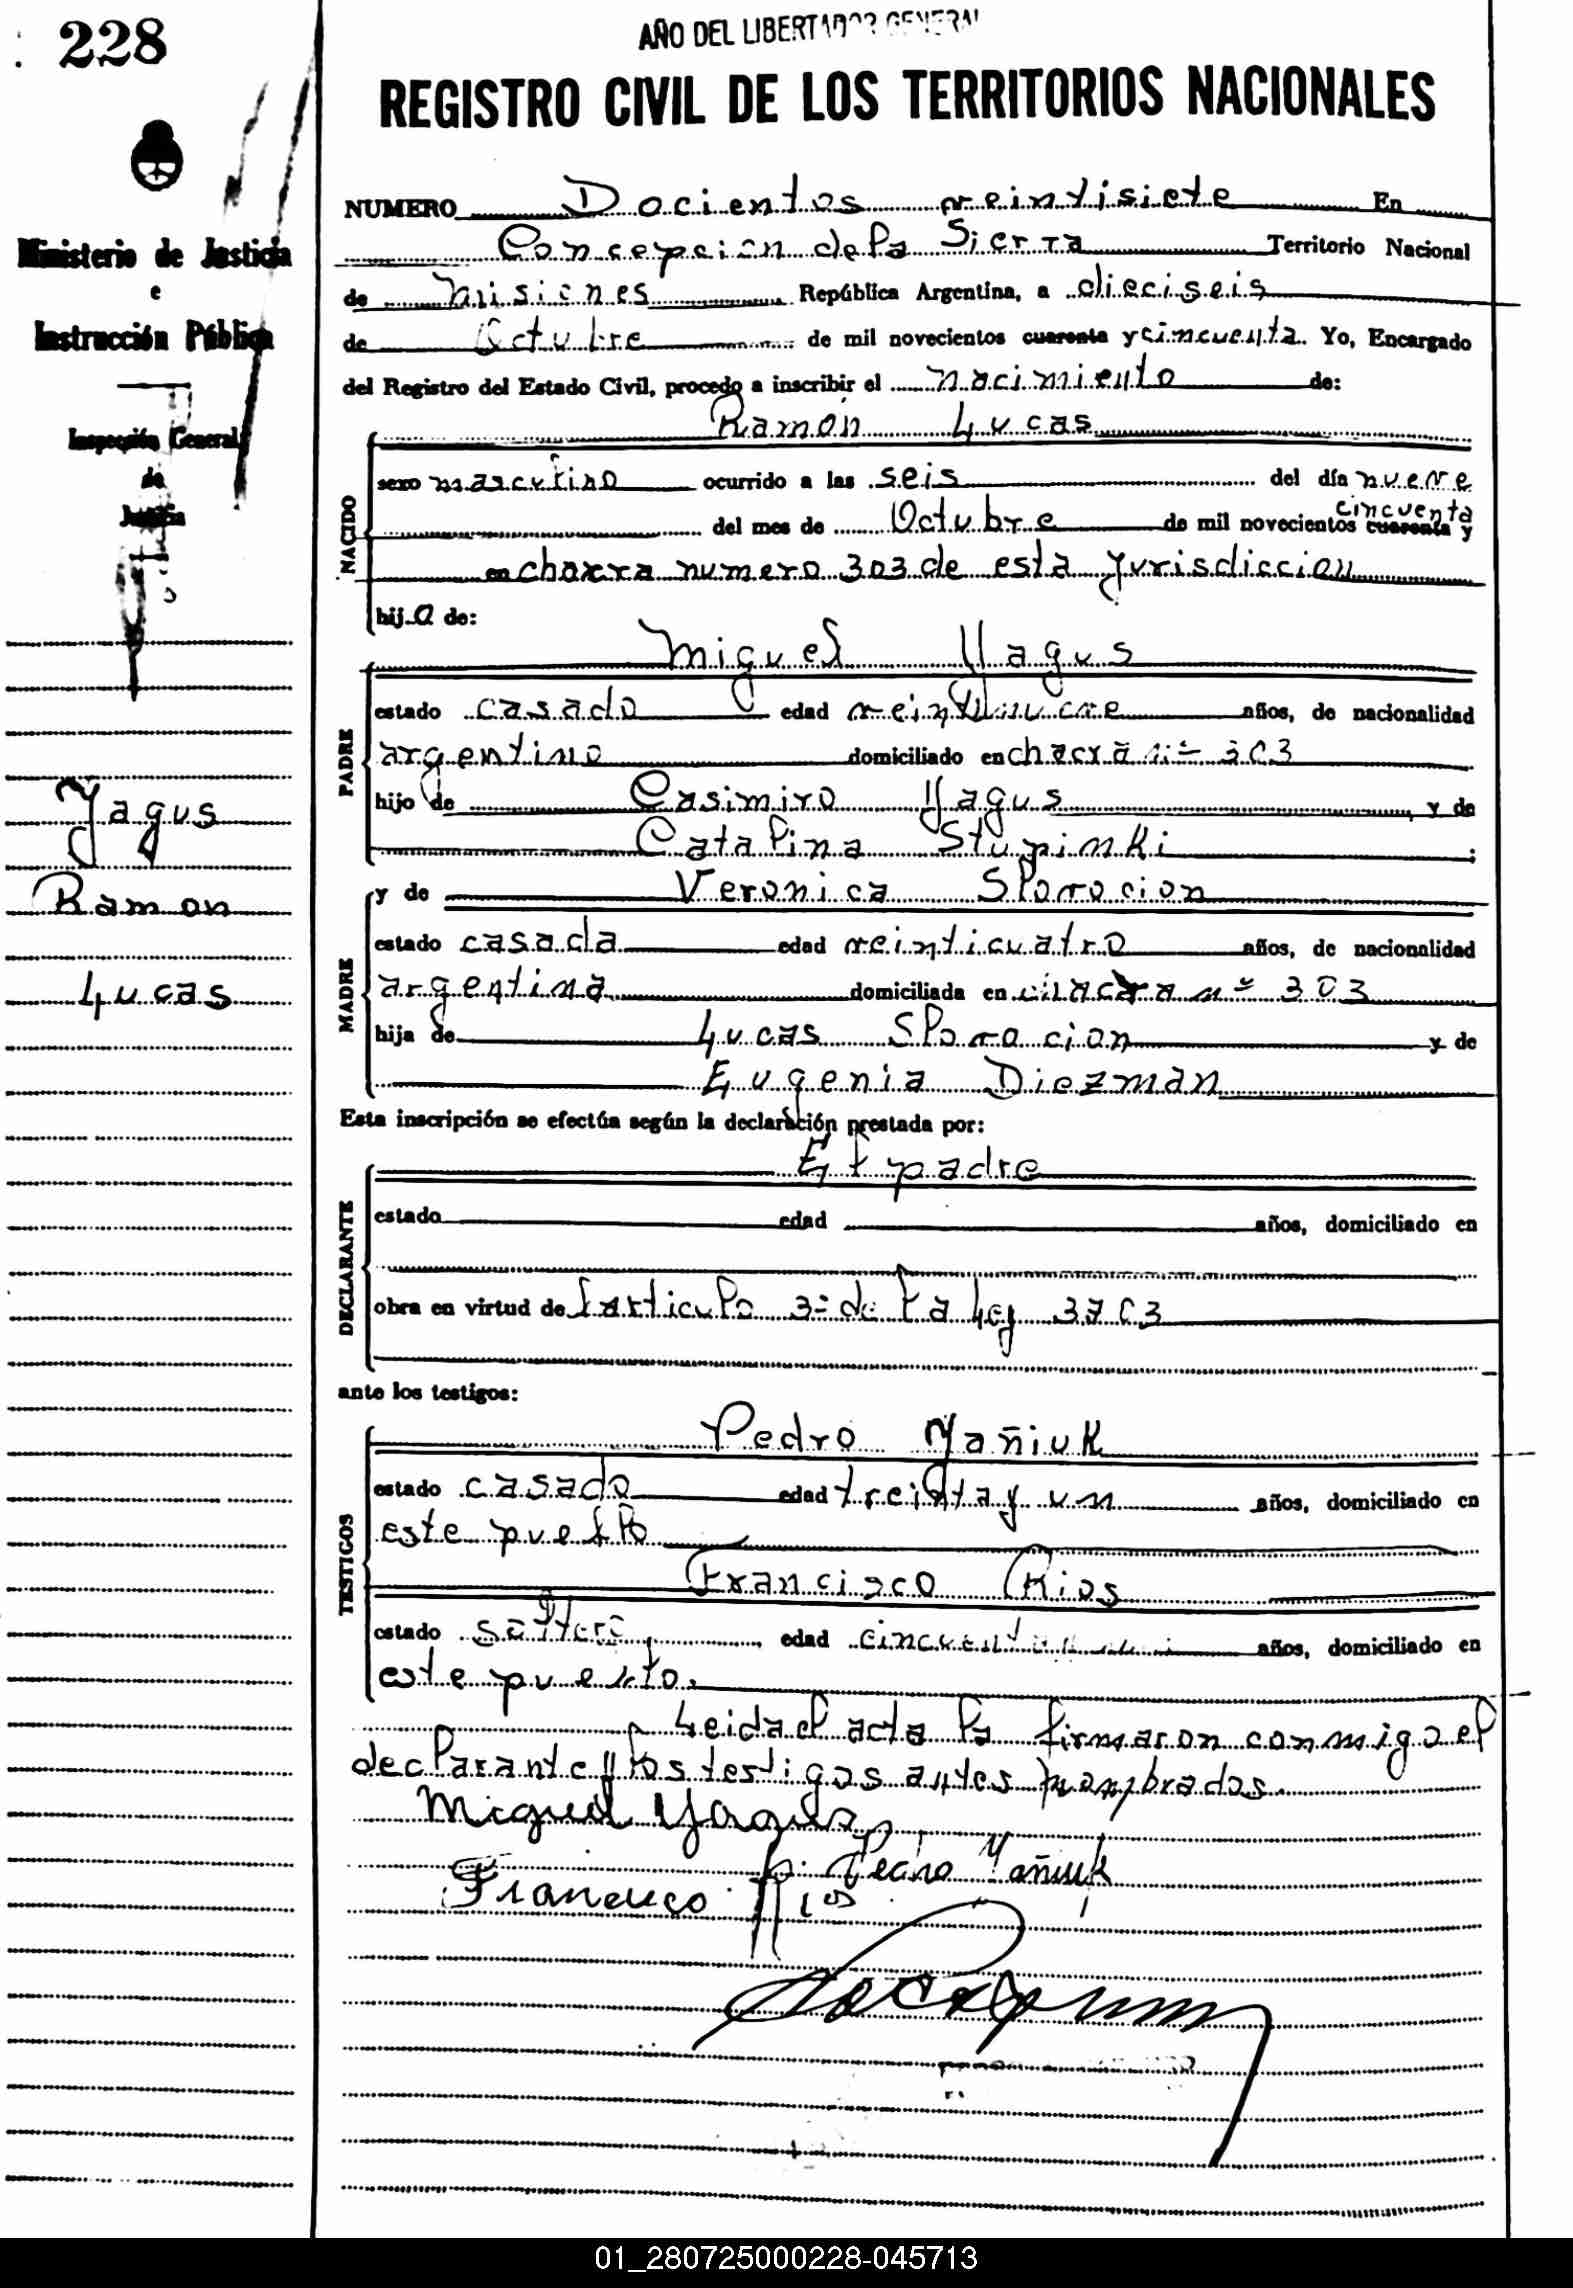 228
AÑO DEL LIBERTADOR GENERAL
REGISTRO CIVIL DE LOS TERRITORIOS NACIONALES
Ministerio de Justicia
e
Instrucción Pública
Inspección General
de
Justicia
Yagus
Ramon
Lucas
NUMERO Docientos veintisiete En
Concepción de la Sierra Territorio Nacional
de Misiones República Argentina, a dieciseis
de Octubre de mil novecientos cuarenta y cincuenta. Yo, Encargado
del Registro del Estado Civil, procedo a inscribir el nacimiento de:
NACIDO
Ramón Lucas
sexo masculino ocurrido a las seis del día nueve
del mes de Octubre de mil novecientos cuarenta y cincuenta
en chacra numero 303 de esta jurisdiccion
hijo de:
PADRE
Miguel Yagus
estado casado edad veintinueve años, de nacionalidad
argentino domiciliado en chacra nº 303
hijo de Casimiro Yagus y de
Catalina Stupinki ;
MADRE
y de Veronica Slorocion
estado casada edad veinticuatro años, de nacionalidad
argentina domiciliada en chacra nº 303
hija de Lucas Slorocion y de
Eugenia Diezman
Esta inscripción se efectúa según la declaración prestada por:
DECLARANTE
El padre
estado edad años, domiciliado en
obra en virtud del articulo 3º de la Ley 3703
ante los testigos:
TESTIGOS
Pedro Yañiuk
estado casado edad treinta y un años, domiciliado en
este pueblo
Francisco Rios
estado soltero edad años, domiciliado en
este puerto.
Leida el acta la firmaron conmigo el
declarante y los testigos antes nombrados.
Miguel Yagus
p. Pedro Yañiuk
Francisco Rios
01_280725000228-045713